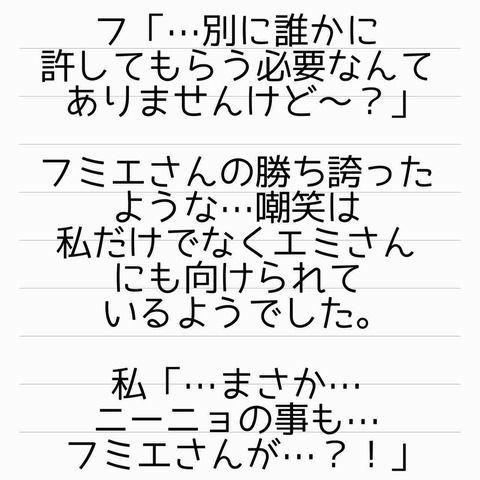 フ「…別に誰かに
許してもらう必要なんて
ありませんけど〜？」
フミエさんの勝ち誇った
ような…嘲笑は
私だけでなくエミさん
にも向けられて
いるようでした。
私「…まさか…
ニーニョの事も…
フミエさんが…？！」